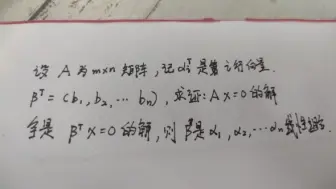 设 A 为 m×n 矩阵，记 αᵢᵀ 是第 i 行向量．
βᵀ = (b₁, b₂, … bₙ)，求证：A x = 0 的解
全是 βᵀ x = 0 的解，则 β是 α₁, α₂, … αₙ 线性